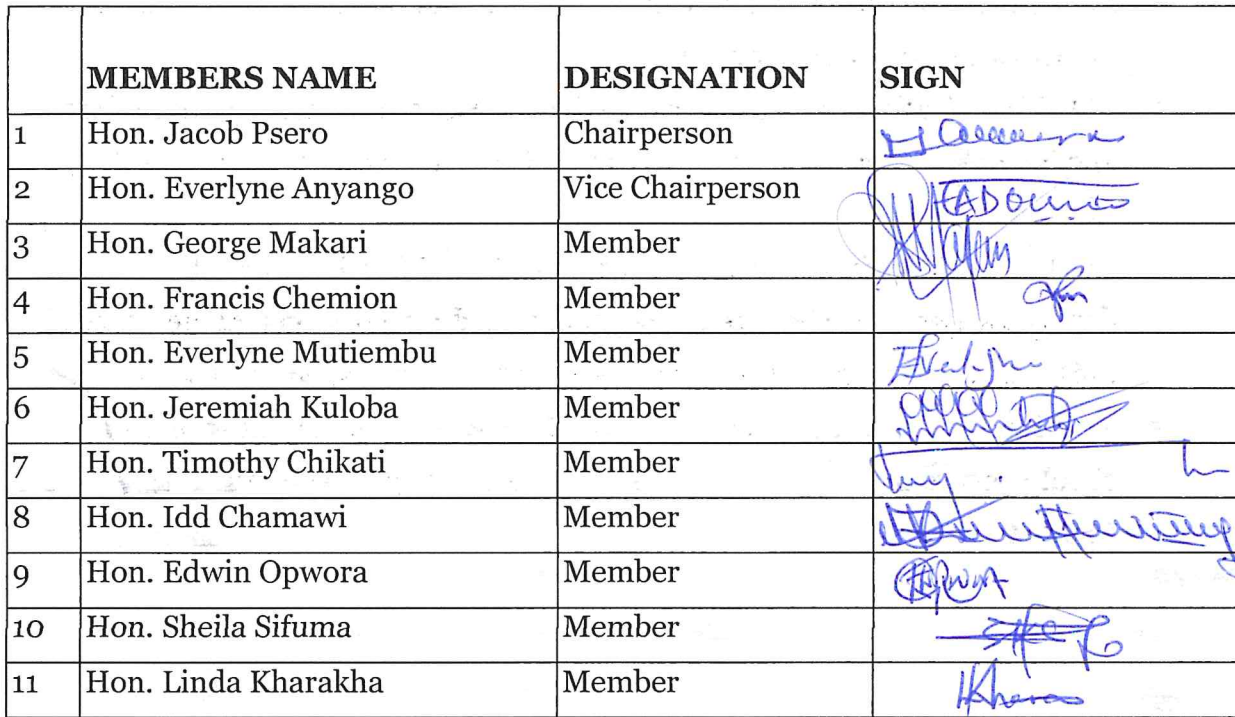 MEMBERS NAME DESIGNATION SIGN
1 Hon. Jacob Psero Chairperson
2 Hon. Everlyne Anyango Vice Chairperson
3 Hon. George Makari Member
4 Hon. Francis Chemion Member
5 Hon. Everlyne Mutiembu Member
6 Hon. Jeremiah Kuloba Member
7 Hon. Timothy Chikati Member
8 Hon. Idd Chamawi Member
9 Hon. Edwin Opwora Member
10 Hon. Sheila Sifuma Member
11 Hon. Linda Kharakha Member